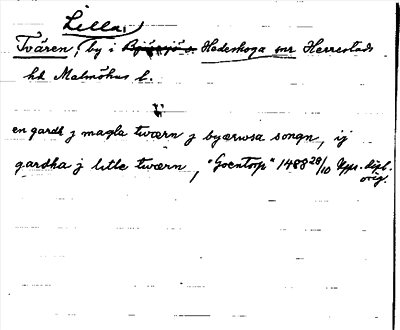 Lilla
Tvären, by i Bjäresjö s. Hedeskoga snr Herrestads
hd Malmöhus l.
en gardh j magla tværn j byærwsa songn, ij
gardha j litle tværn, "Goentorp" 1488 28/10 Upps. dipl.
orig.